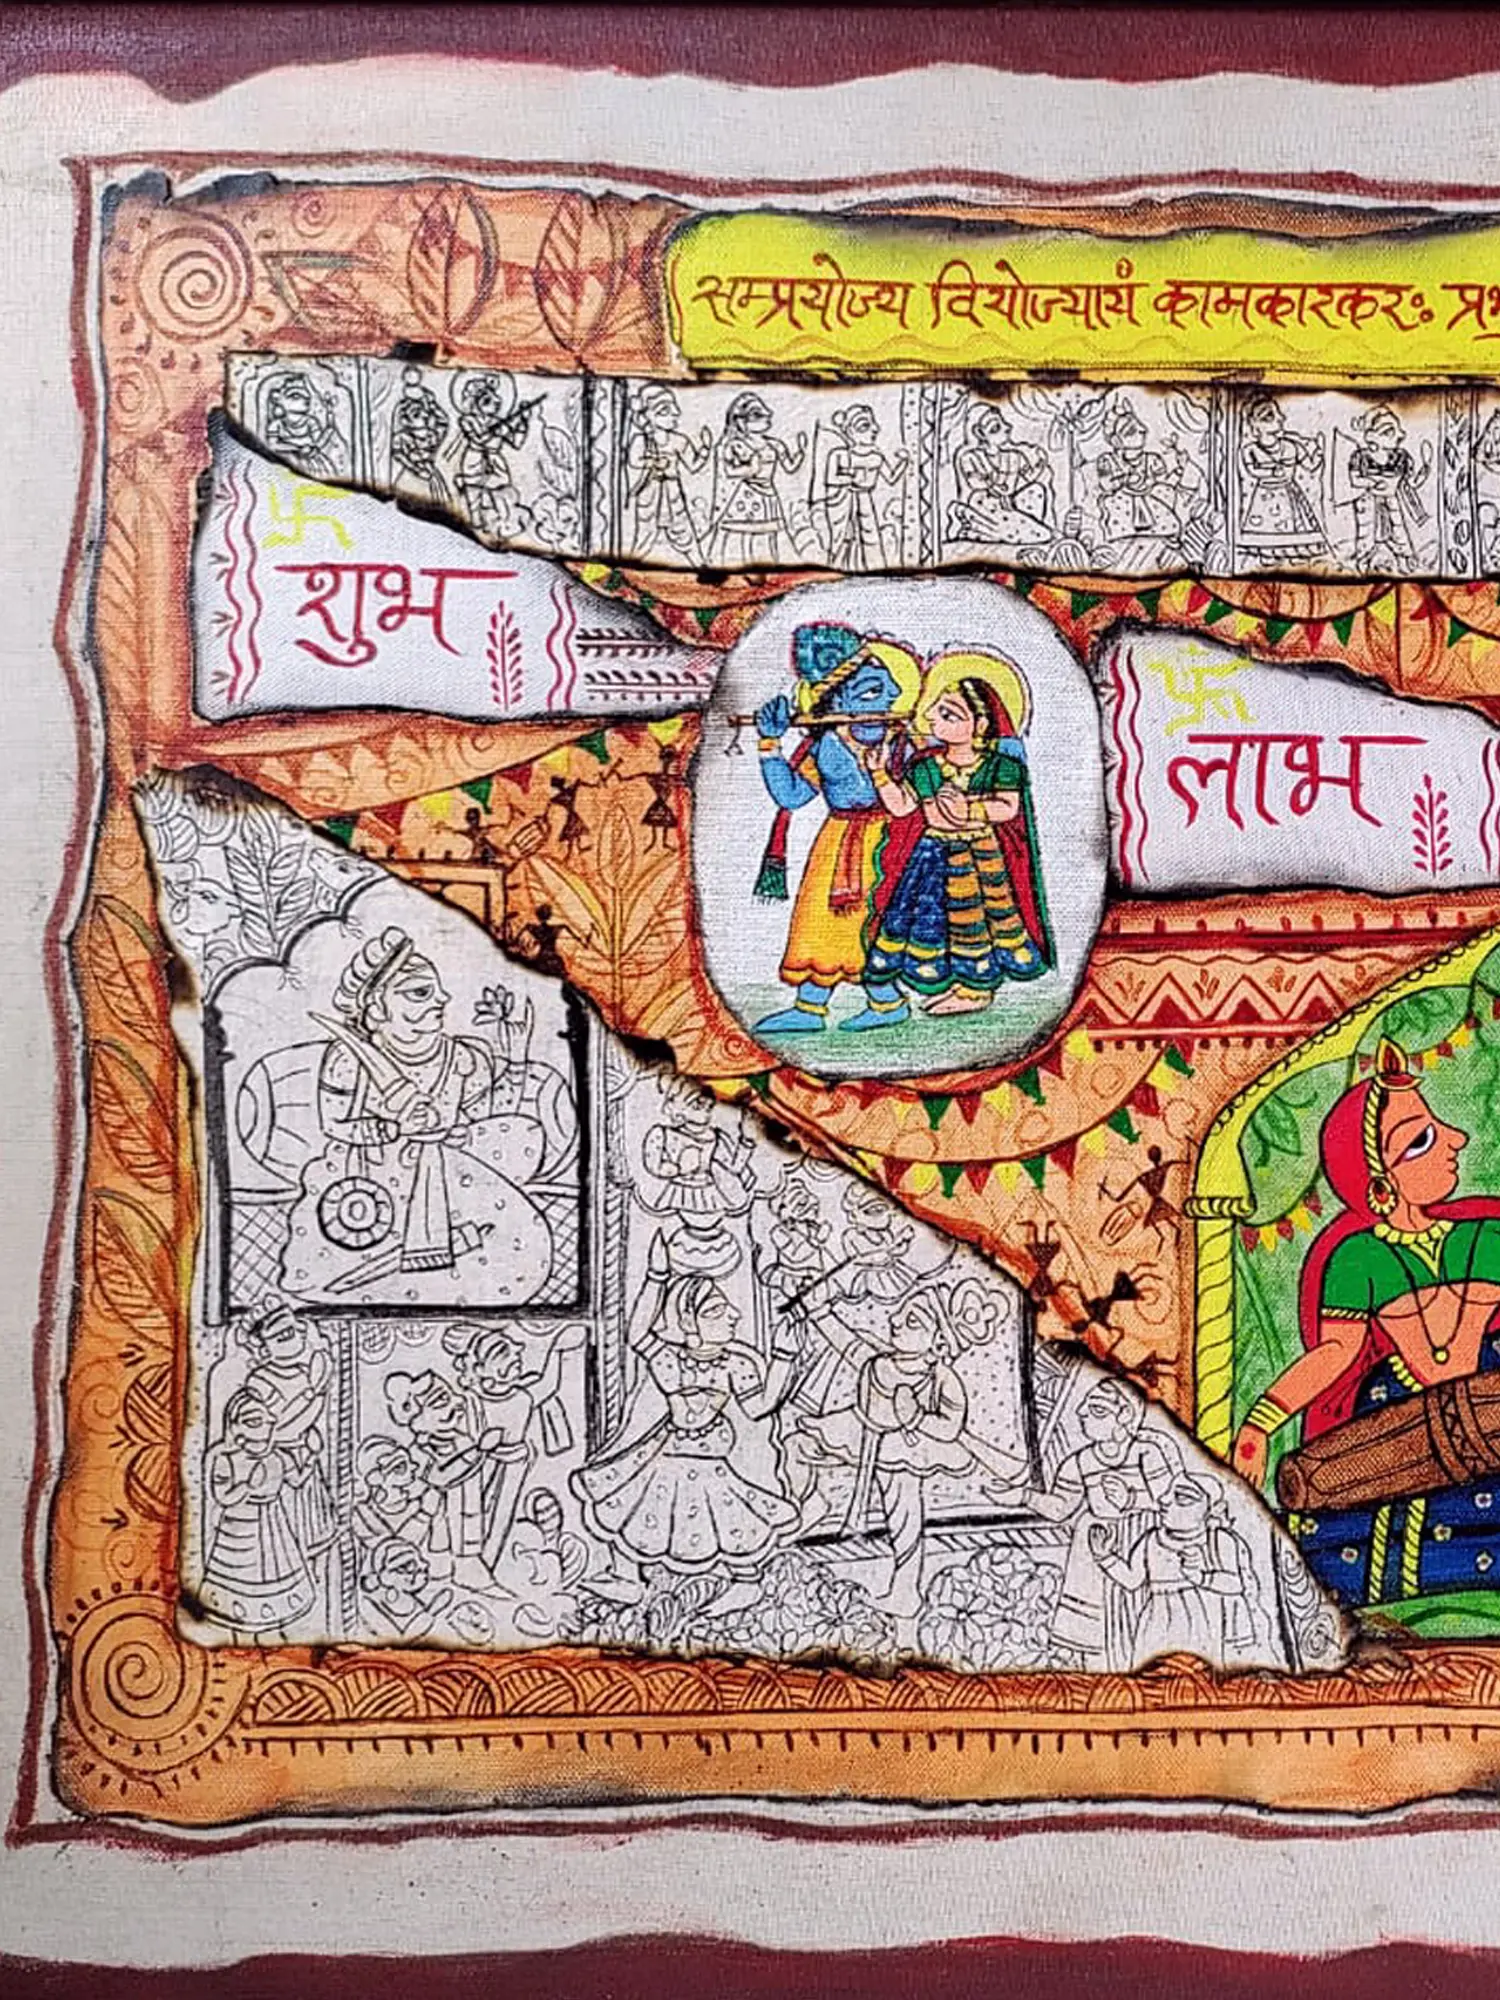 सम्प्रयोज्य वियोज्यायं कामकारकरः
शुभ
लाभ